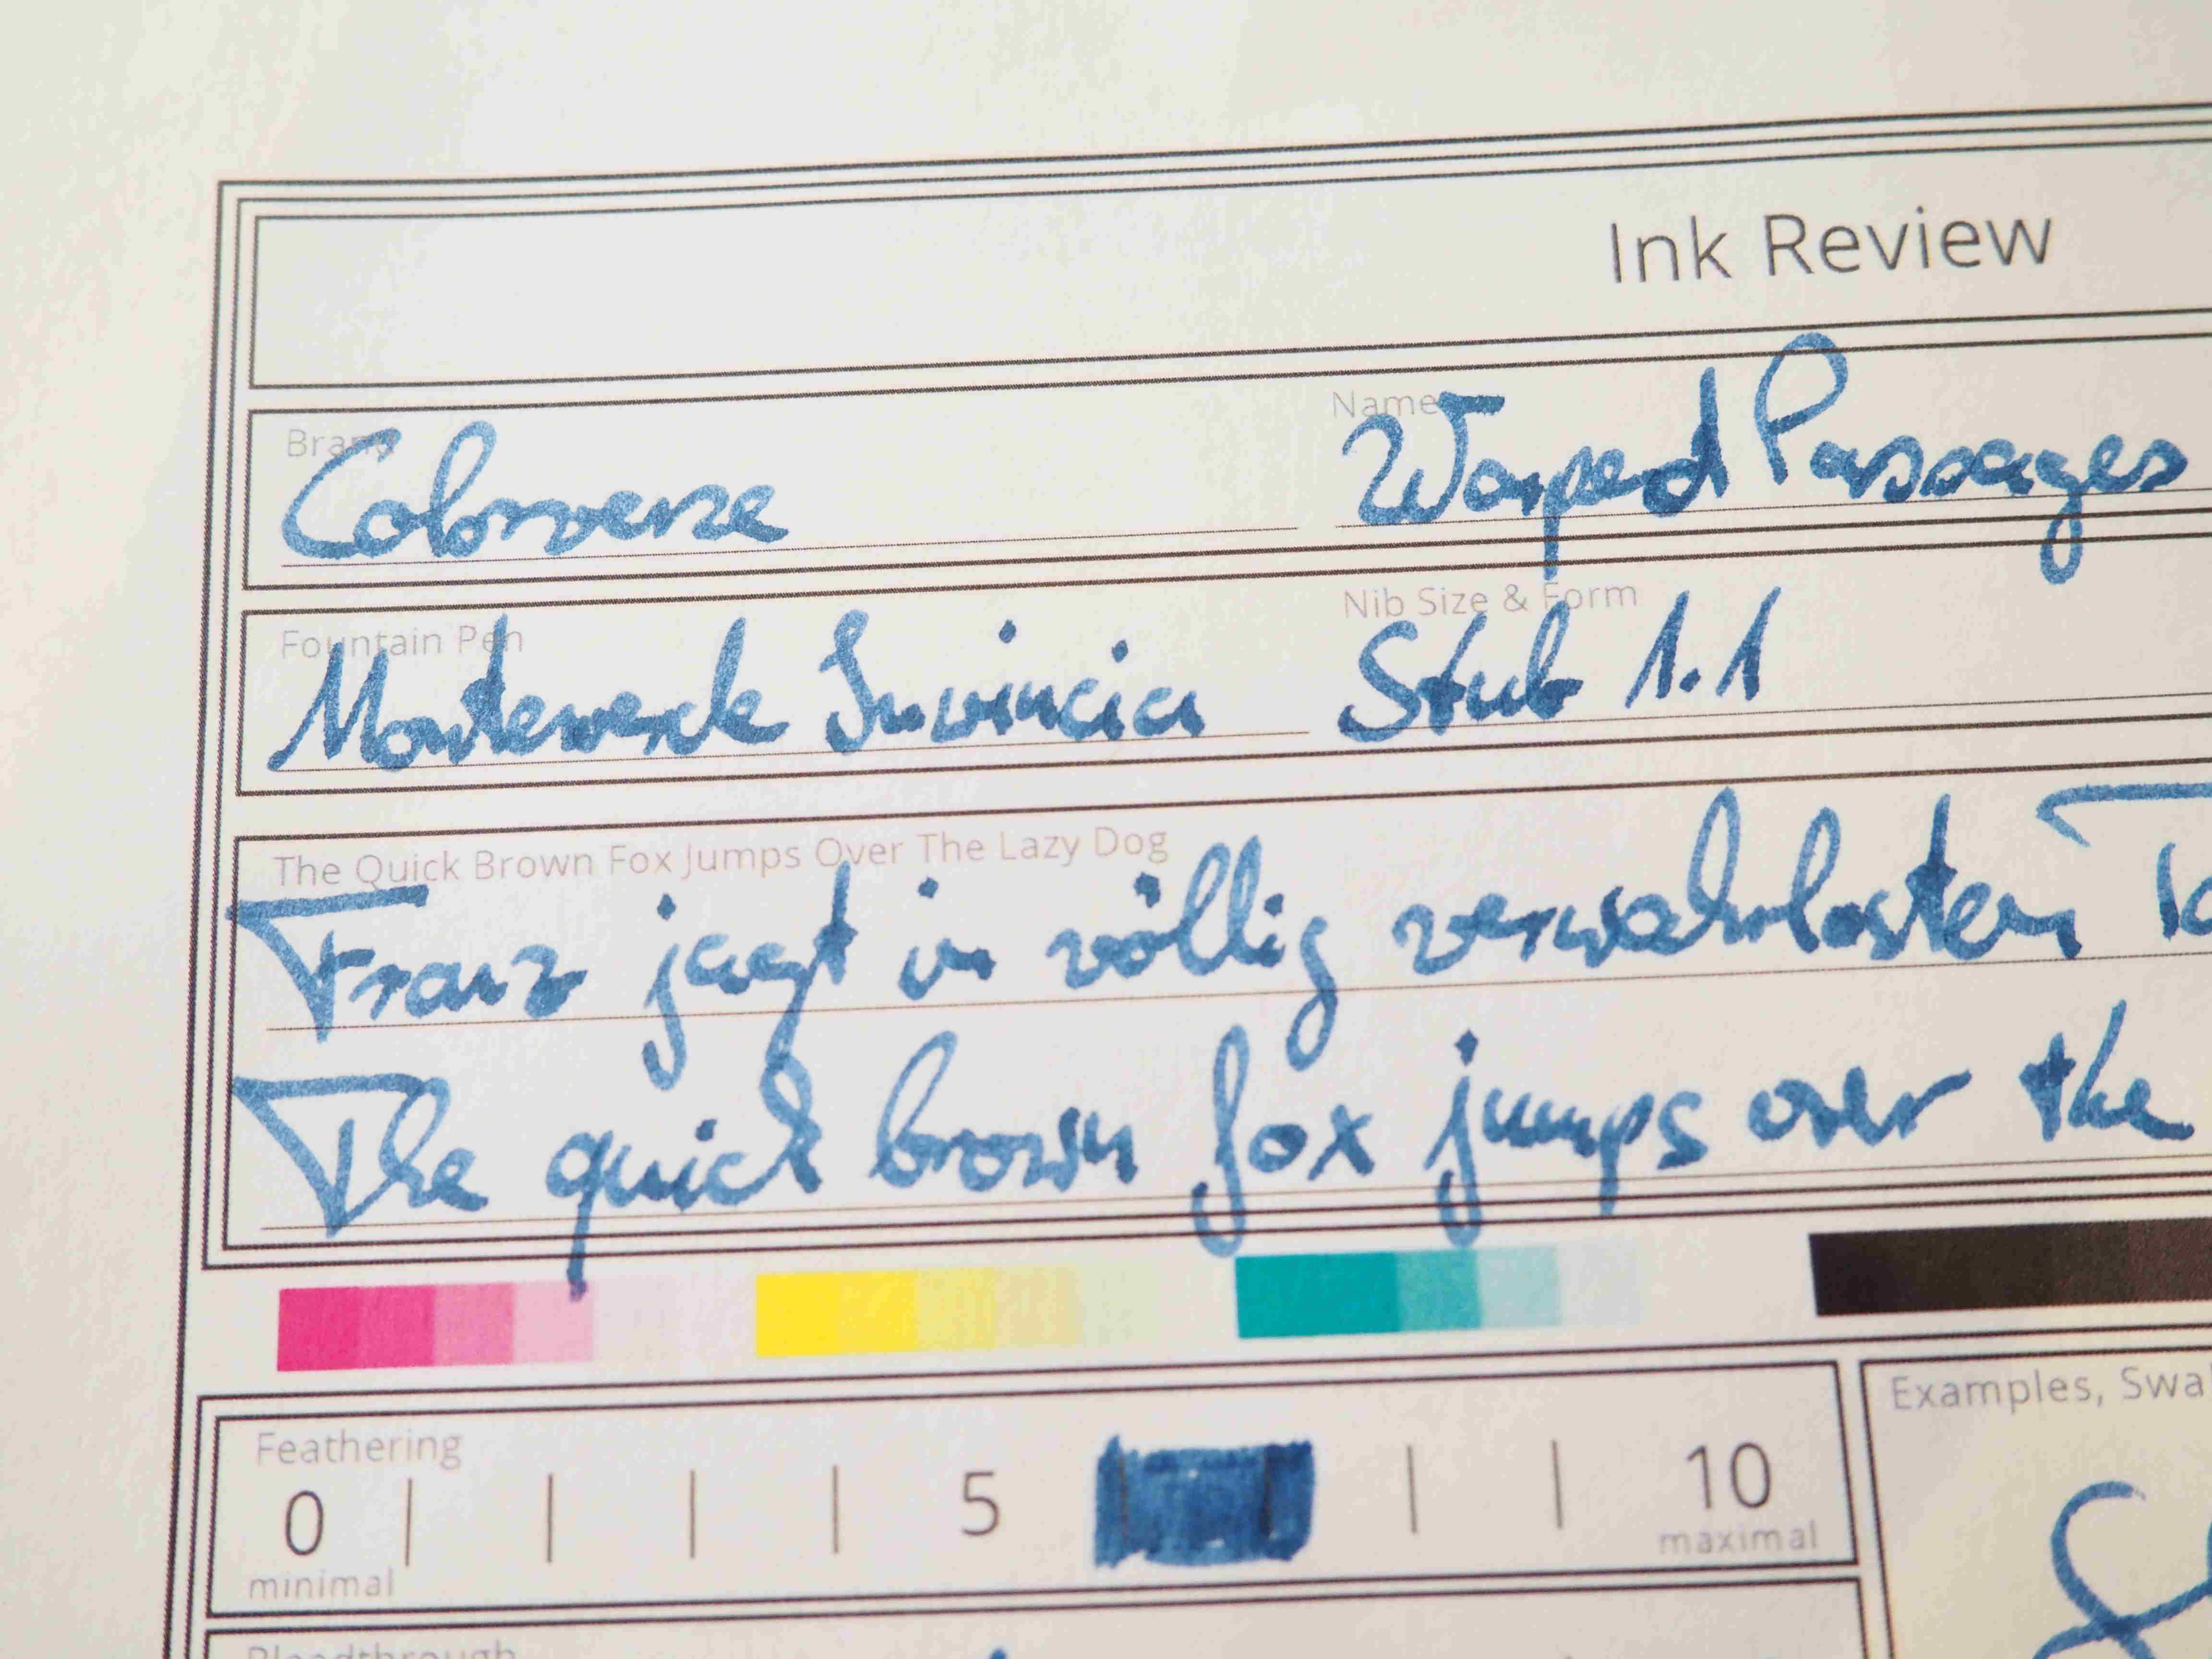 Ink Review
Brand Name
Colorverse Warped Passages
Fountain Pen Nib Size & Form
Monteverde Invincia Stub 1.1
The Quick Brown Fox Jumps Over The Lazy Dog
Franz jagt in völlig verwahrlosten
The quick brown fox jumps over the
Examples,
Feathering
0 5 10
minimal maximal
Bleedthrough